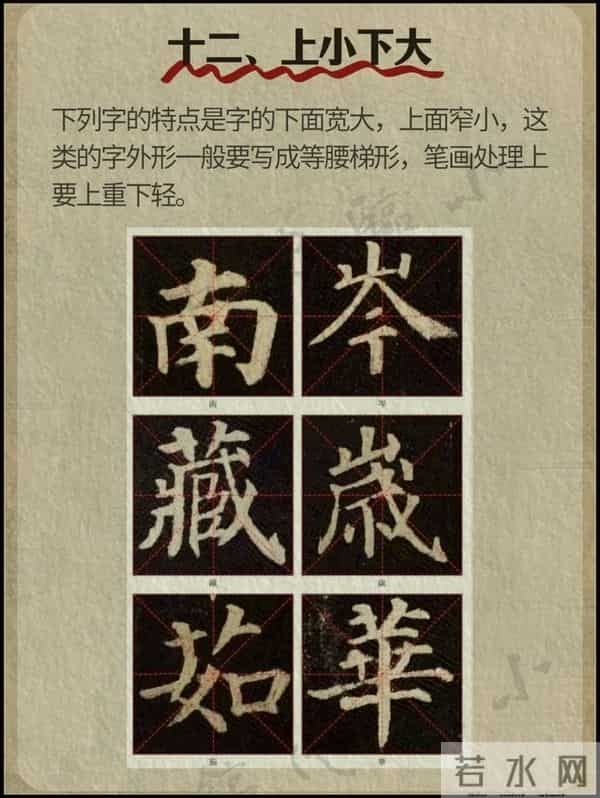 十二、上小下大
下列字的特点是字的下面宽大，上面窄小，这
类的字外形一般要写成等腰梯形，笔画处理上
要上重下轻。
南 岑
南 岑
藏 歲
藏 歲
茹 華
茹 華
若水网